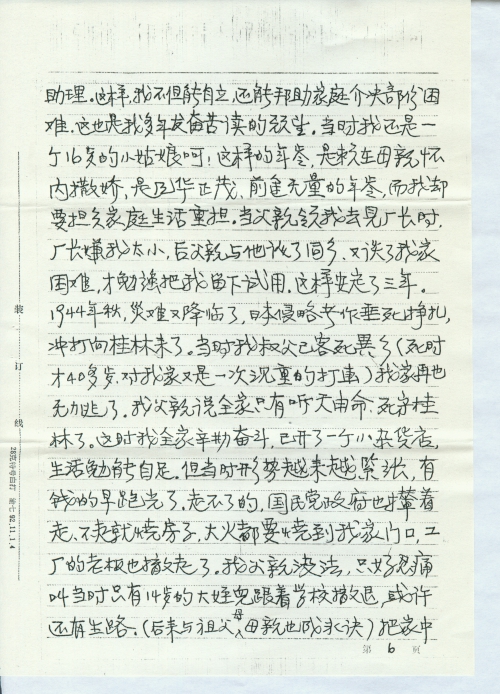 助理。这样,我不但能自立,还能邦助家庭介决部份困
难。这也是我多年发奋苦读的愿望。当时我还是一
个16岁的小姑娘呵!这样的年令,是赖在母亲怀
内撒娇,是风华正茂、前途无量的年令,而我却
要担负家庭生活重担。当父亲领我去见厂长时,
厂长嫌我太小,后父亲与他讹了同乡,又谈了我家
困难,才勉强把我留下试用。这样安定了三年。
1944年秋,災难又降临了,日本侵略者作垂死挣扎,
冲打向桂林来了。当时我叔父已客死異乡(死时
才40多岁,对我家又是一次沉重的打击)我家再也
无力逃了。我父亲说全家只有听天由命、死守桂
林了。这时我全家辛勤奋斗,已开了一个小杂货店,
生活勉能自足。但当时形势越来越紧张,有
钱的早跑光了,走不了的,国民党政府也撵着
走,不走就烧房子,大火都要烧到我家门口,工
厂的老板也撤走了。我父亲没法,只好忍痛
叫当时只有14岁的大妹兒跟着学校撤退,或许
还有生路。(后来与祖父母、母亲也成永诀)把家中
第 6 頁
装 订 线